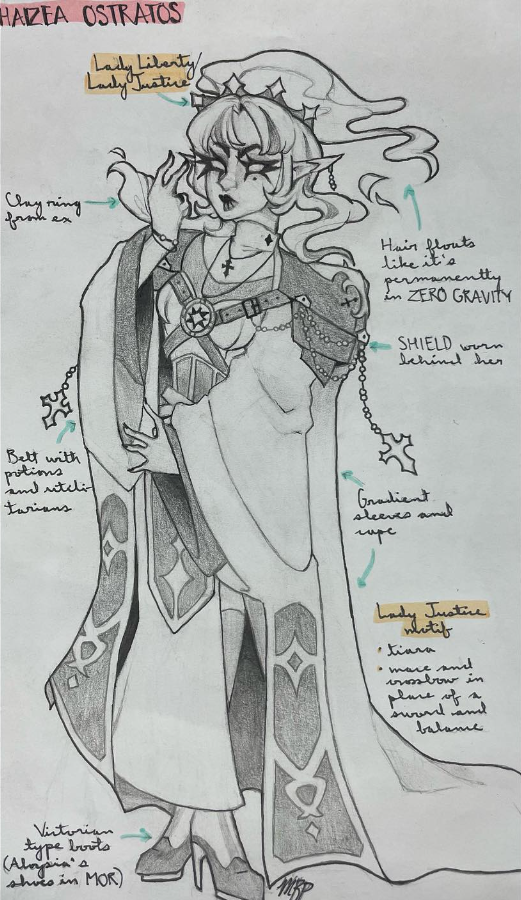 HAIZEA OSTRATOS
Lady Liberty/
Lady Justice
Clay ring
from ex
Hair floats
like it's
permanently
in ZERO GRAVITY
SHIELD worn
behind her
Belt with
potions
and utili-
tarians
Gradient
sleeves and
cape
Lady Justice
motif
• tiara
• mace and
crossbow in
place of a
sword and
balance
Victorian
type boots
(Aloysia's
shoes in MOR)
MRP